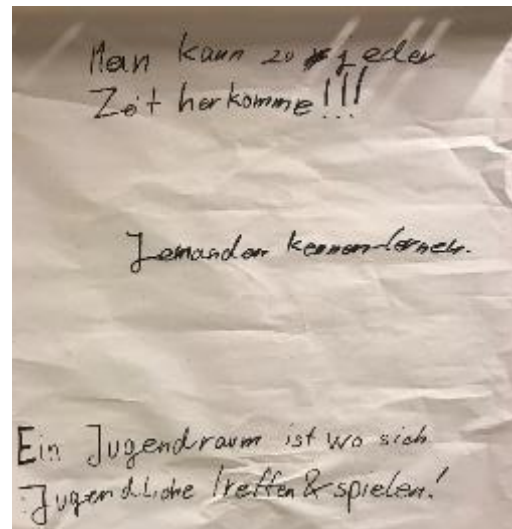 Man kann zu jeder
Zeit herkomme!!!
Jemanden kennenlernen.
Ein Jugendraum ist wo sich
Jugendliche treffen & spielen!